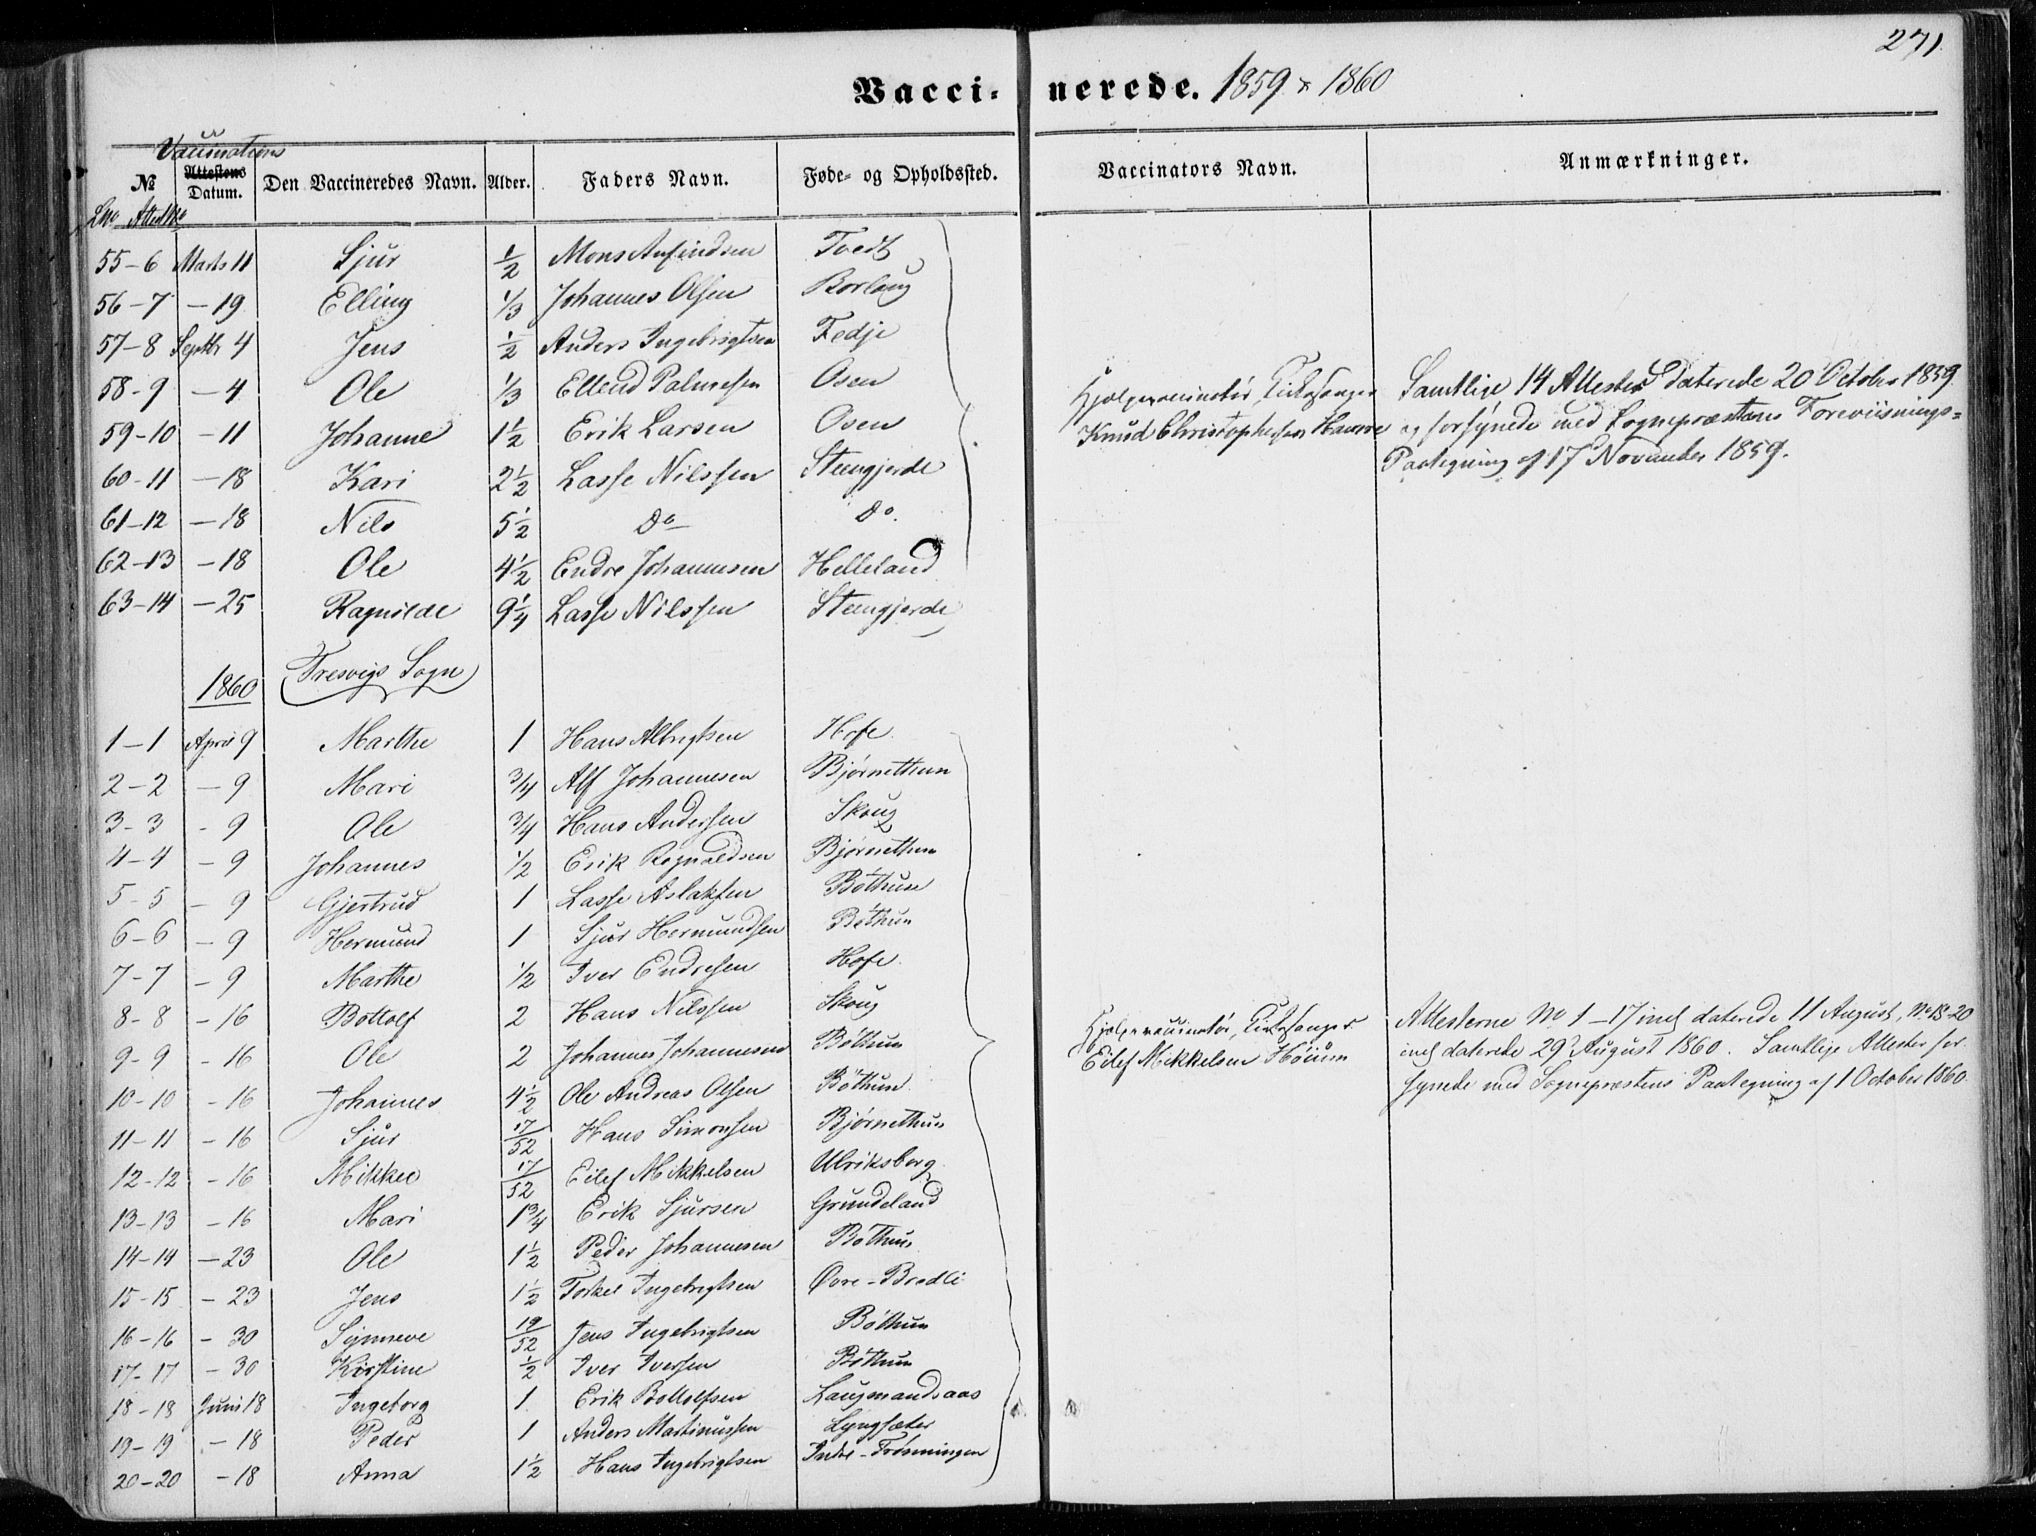 271
Vacci- nerede. 1859 & 1860
Vaccinations
№ Attestens Datum. Den Vaccineredes Navn. Alder. Faders Navn. Føde- og Opholdssted. Vaccinators Navn. Anmærkninger.
55-6 Marts 11 Sjur 1/2 Mons Anfindsen Tvedt
56-7 - 19 Elling 1/3 Johannes Olsen Borlaug
57-8 Septbr 4 Jens 1/2 Anders Ingebrigtsen Fedje
58-9 - 4 Ole 1/3 Ellend Palmesen Osen
59-10 - 11 Johanne 1 1/2 Erik Larsen Osen
60-11 - 18 Kari 2 1/2 Lasse Nilssen Steengjerde
61-12 - 18 Nils 5 1/2 Do Do.
62-13 - 18 Ole 4 1/2 Endre Johannesen Helleland
63-14 - 25 Ragnilde 9 1/4 Lasse Nilssen Steengjerde
Hjelpevaccinatør, Kirkesanger
Knud Christophersen Hamre
Samtlige 14 Attester daterede 20 October 1859
og forsynede med Sognepræstens Foreviisnings-
Paategning af 17 November 1859.
1860 Fresvigs Sogn
1-1 April 9 Marthe 1 Hans Albrigtsen Hofe
2-2 - 9 Mari 3/4 Alf Johannesen Bjørnethun
3-3 - 9 Ole 3/4 Hans Andersen Skoug
4-4 - 9 Johannes 1/2 Erik Rognaldsen Bjørnethun
5-5 - 9 Gjertrud 1 Lasse Aslaksen Bøthun
6-6 - 9 Hermund 1 Sjur Hermundsen Bøthun
7-7 - 9 Marthe 1/2 Iver Endresen Hofe.
8-8 - 16 Bottolf 2 Hans Nilssen Skoug
9-9 - 16 Ole 2 Johannes Johannesen Bøthun
10-10 - 16 Johannes 4 1/2 Ole Andreas Olsen Bøthun
11-11 - 16 Sjur 17/52 Hans Simonsen Bjørnethun
12-12 - 16 Mikkel 17/52 Eilef Mikkelsen Ulriksborg
13-13 - 16 Mari 1 3/4 Erik Sjursen Grundeland
14-14 - 23 Ole 1 1/2 Peder Johannesen Bøthun
15-15 - 23 Jens 1 1/2 Torkel Ingebrigtsen Øvre-Bredli
16-16 - 30 Synneve 19/52 Jens Ingebrigtsen Bøthun
17-17 - 30 Kirstine 1/2 Iver Iversen Bøthun
18-18 Juni 18 Ingeborg 1 Erik Bottolfsen Laugmandsaas
19-19 - 18 Peder 1 Anders Martinussen Lyngsæter
20-20 - 18 Anna 1 1/2 Hans Ingebrigtsen Indre-Frønningen
Hjelpevaccinatør, Kirkesanger
Eilef Mikkelsen Høium
Attesterne No 1-17 incl daterede 11 August, No 18-20
incl daterede 29 August 1860. Samtlige Attester for-
synede med Sognepræstens Paategning af 1 October 1860.